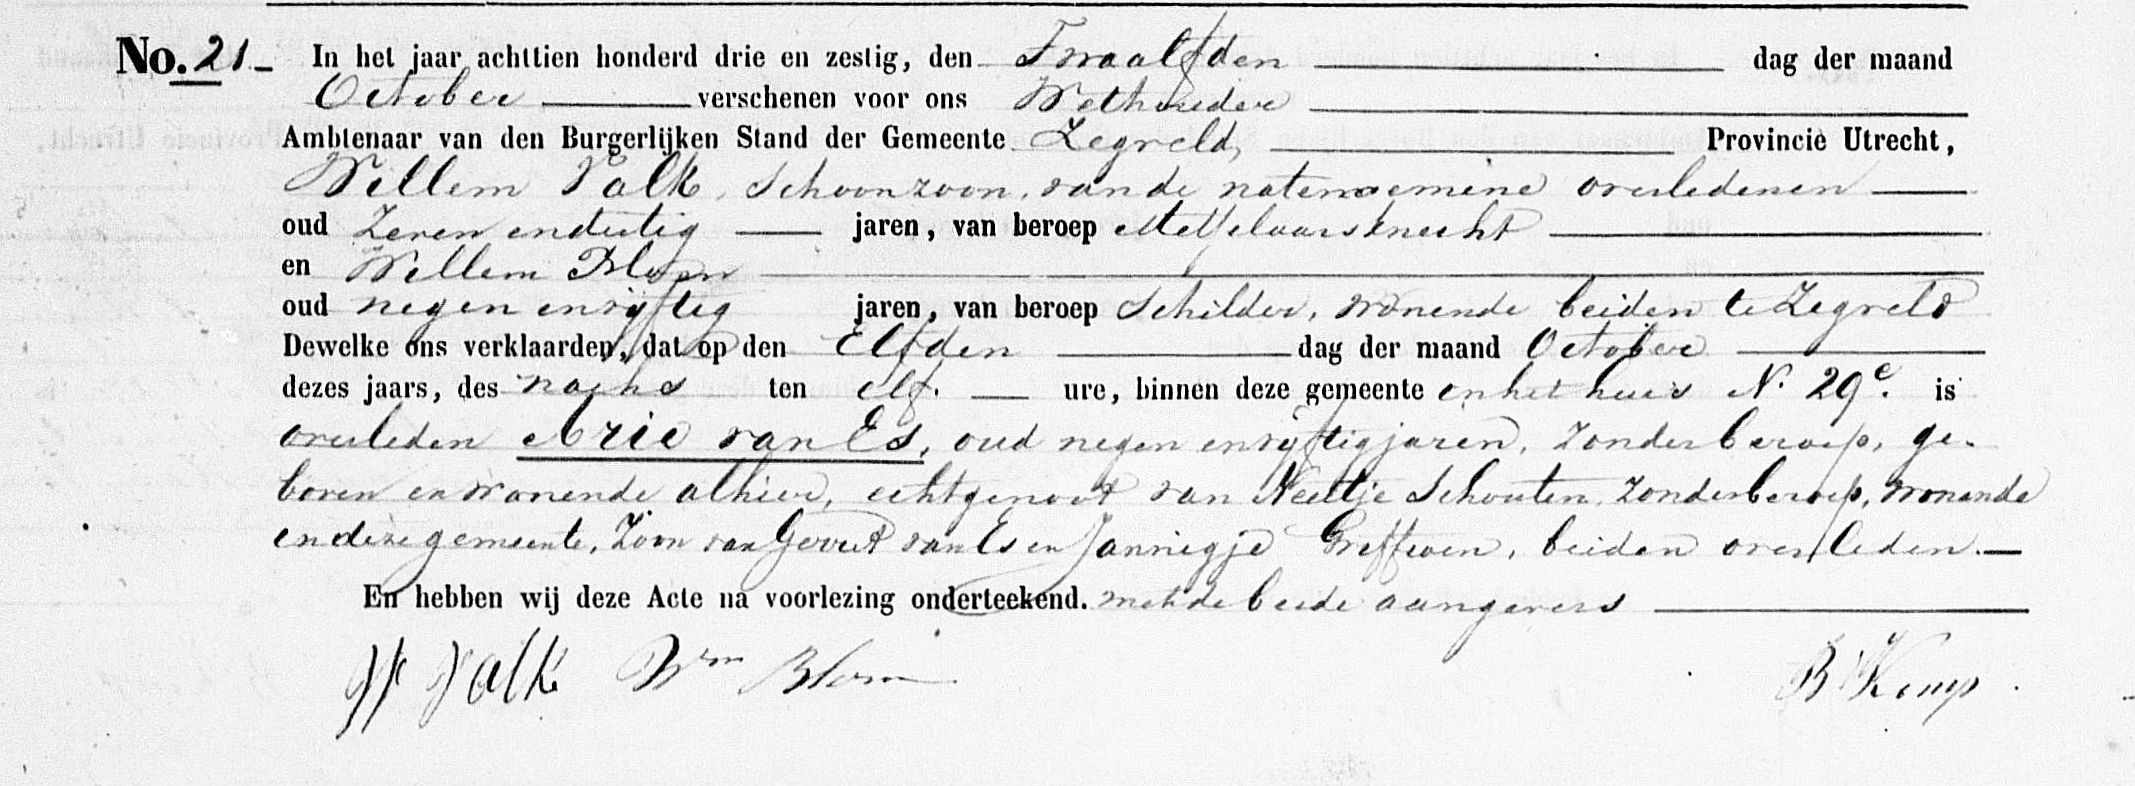 No. 21 - In het jaar achttien honderd drie en zestig, den Twaalfden dag der maand
October verschenen voor ons Wethouder
Ambtenaar van den Burgerlijken Stand der Gemeente Zegveld, Provincie Utrecht,
Willem Valk, Schoonzoon, van de natenoemene overledenen
oud Zeven endertig jaren, van beroep Metselaarsknecht
en Willem Blom
oud negen envijftig jaren, van beroep Schilder, wonende beiden te Zegveld
Dewelke ons verklaarden, dat op den Elfden dag der maand October
dezes jaars, des nachts ten elf. ure, binnen deze gemeente en het huis N. 29e. is
overleden Arie van Es, oud negen envijftig jaren, Zonder beroep, ge-
boren en wonende alhier, echtgenoot van Neeltje Schouten, Zonder beroep, wonende
in deze gemeente, Zoon van Gerrit van Es en Jannigje Greffioen, beiden overleden.
En hebben wij deze Acte na voorlezing onderteekend. met de beide aangevers
W Valk Wm Blom B Kemp